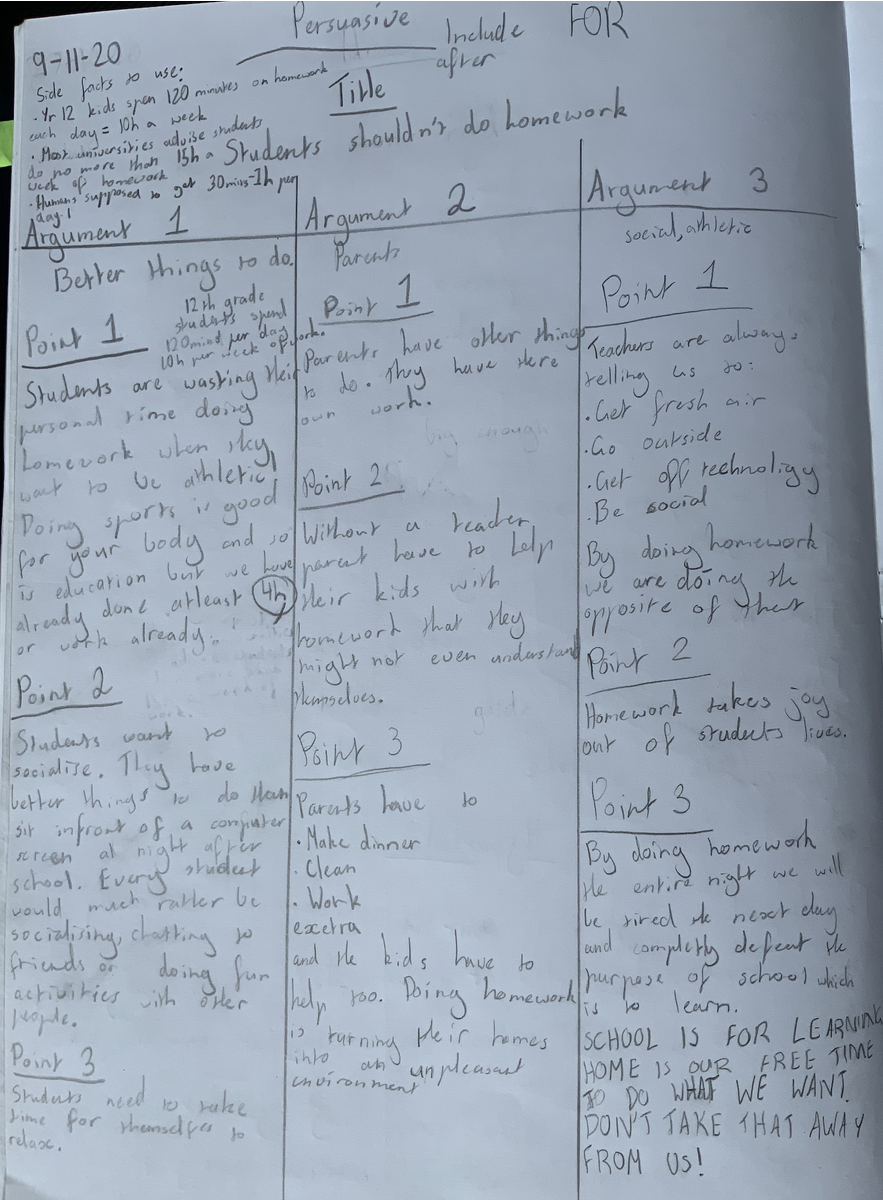 Persuasive
Include
after
FOR
9-11-20
Side facts to use:
• Yr 12 kids spen 120 minutes on homework
each day = 10h a week
• Most universities advise students
do no more than 15h a
week of homework
• Humans supposed to get 30mins-1h per
day.1
Title
Students shouldn't do homework
Argument 1
Better things to do.
Point 1
12th grade
students spend
120mins per day
10h per week of work.
Students are wasting their
personal time doing
homework when they
want to be athletic!
Doing sports is good
for your body and so
is education but we have
already done atleast 4h
or work already.
Point 2
Students want to
socialise. They have
better things to do than
sit infront of a computer
screen al night after
school. Every student
would much rather be
socialising, chatting to
friends or doing fun
activities with other
people.
Point 3
Students need to take
time for themselfs to
relax.
Argument 2
Parents
Point 1
Parents have other things
to do. They have there
own work.
Point 2
Without a teacher
parent have to help
their kids with
homework that they
might not even understand
themselves.
Point 3
Parents have to
• Make dinner
• Clean
• Work
excetra
and the kids have to
help too. Doing homework
is turning their homes
into an unpleasant
environment
Argument 3
social, athletic
Point 1
Teachers are always
telling us to:
• Get fresh air
• Go outside
• Get off technoligy
• Be social
By doing homework
we are doing the
opposite of that
Point 2
Homework takes joy
out of students lives.
Point 3
By doing homework
the entire night we will
be tired the next day
and completly defeat the
purpose of school which
is to learn.
SCHOOL IS FOR LEARNING
HOME IS OUR FREE TIME
TO DO WHAT WE WANT.
DON'T TAKE THAT AWAY
FROM US!